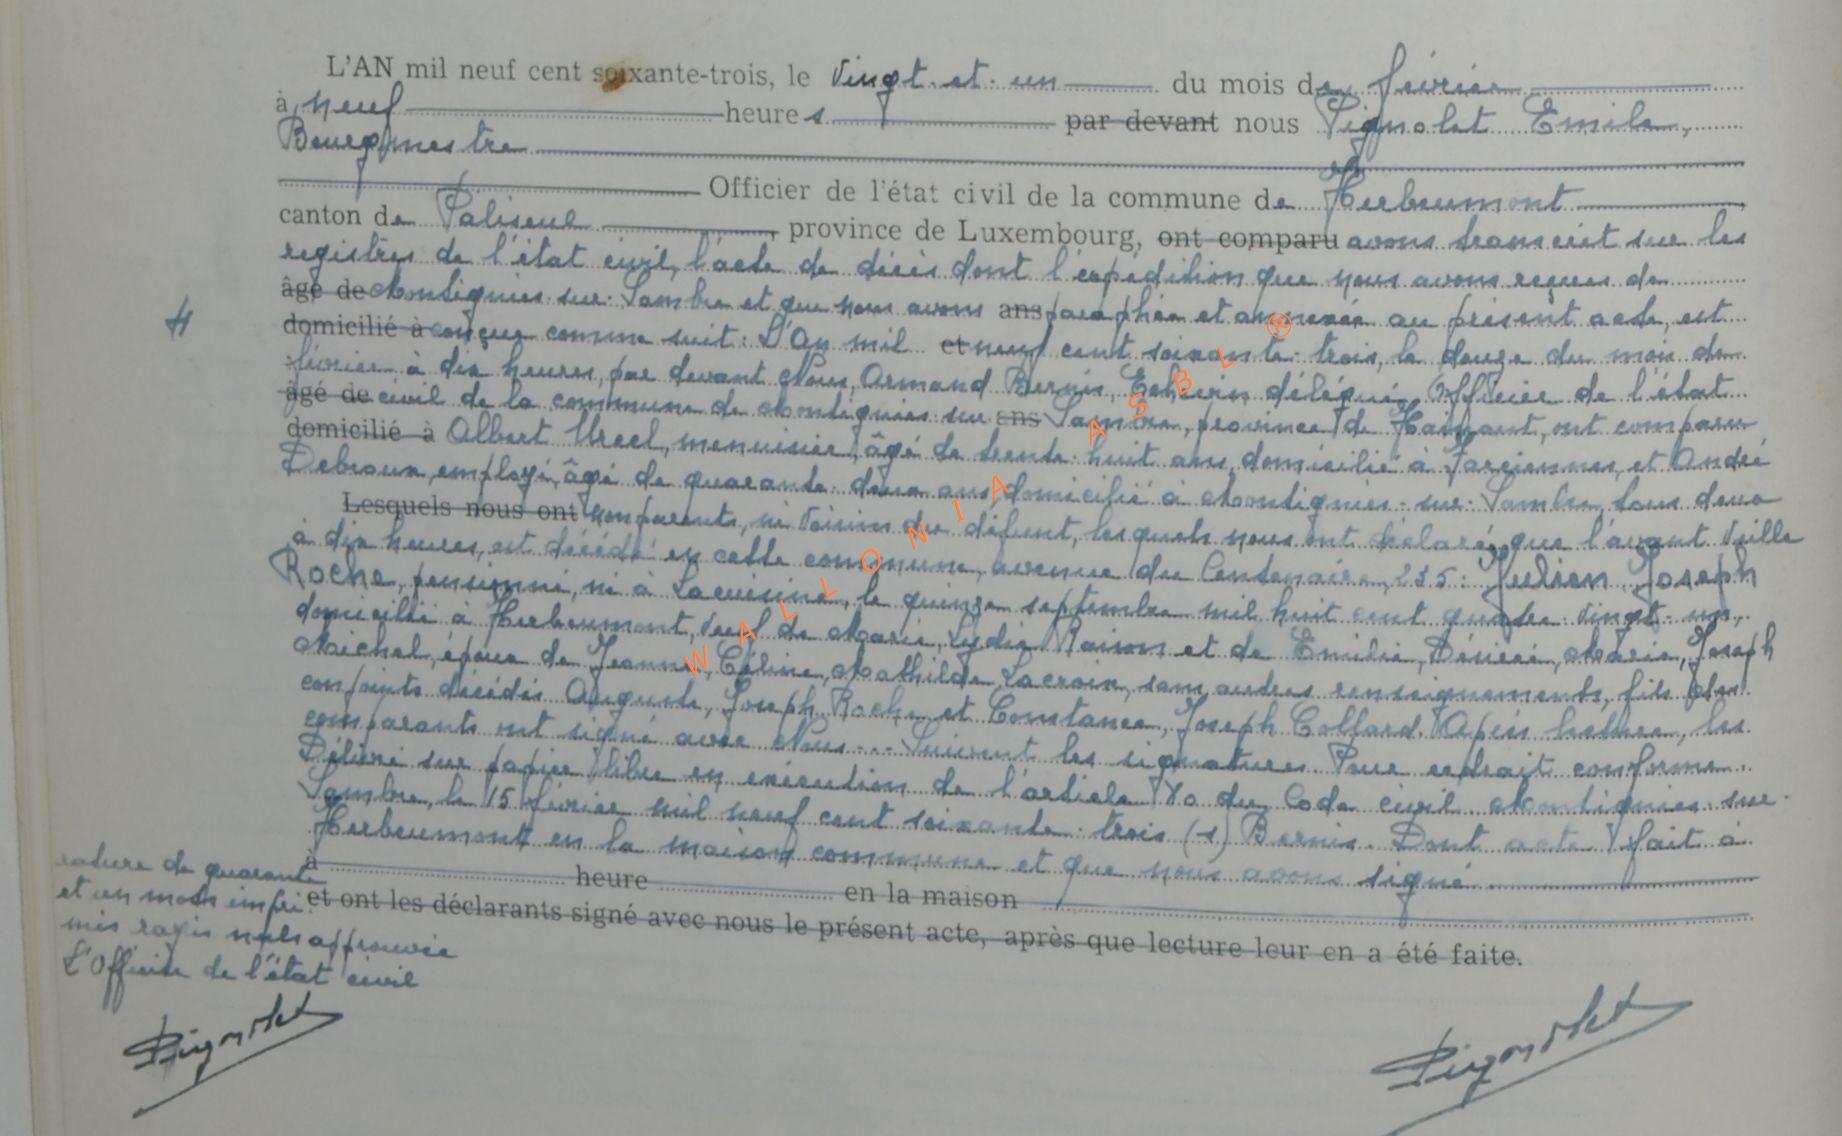 L'AN mil neuf cent soixante-trois, le vingt et un du mois de février
à neuf heures par devant nous Pignolet Emile,
Bourgmestre
Officier de l'état civil de la commune de Herbeumont
canton de Paliseul, province de Luxembourg, ont comparu avons transcrit sur les
registres de l'état civil, l'acte de décès dont l'expédition que nous avons reçue de
âgé de Montignies-sur-Sambre et que nous avons ans paraphée et annexée au présent acte, est
4 domicilié à conçue comme suit: L'An mil et neuf cent soixante-trois, le douze du mois de
février à dix heures, par devant Nous, Armand Bernis, Echevin délégué, Officier de l'état
âgé de civil de la commune de Montignies-sur ans Sambre, province de Hainaut, ont comparu
domicilié à Albert Urcel, menuisier, âgé de trente-huit ans, domicilié à Farciennes, et André
Debroux, employé, âgé de quarante-deux ans, domicilié à Montignies-sur-Sambre, tous deux
Lesquels nous ont non parents, ni voisins du défunt, lesquels nous ont déclaré que l'avant veille
à dix heures, est décédé en cette commune, avenue du Centenaire, 235: Julien Joseph
Roche, pensionné, né à Lacuisine, le quinze septembre mil huit cent quatre-vingt-un,
domicilié à Herbeumont, veuf de Marie, Lydie Raison et de Emilie, Désirée, Marie, Joseph
Michel, époux de Jeanne, Céline, Mathilde, Lacroix, sans autres renseignements, fils des
conjoints décédés Auguste, Joseph Roche et Constance, Joseph Collard. Après lecture, les
comparants ont signé avec Nous... Suivent les signatures. Pour extrait conforme.
Délivré sur papier libre en exécution de l'article 80 du Code civil Montignies-sur-
Sambre, le 15 février mil neuf cent soixante-trois (s) Bernis. Dont acte fait à
Herbeumont en la maison commune et que nous avons signé
à heure en la maison
et ont les déclarants signé avec nous le présent acte, après que lecture leur en a été faite.
rature de quarante
et un mots impri-
més rayés nuls approuvée
L'Officier de l'état civil
Pignolet
Pignolet
WALLONIA ASBL ®